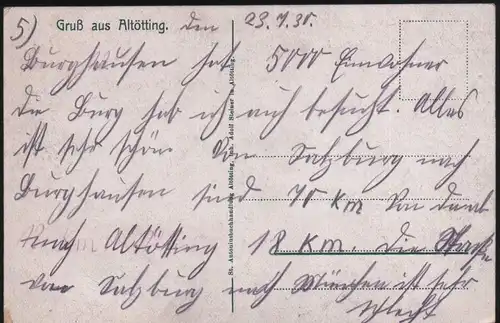 5) Gruß aus Altötting. den 23.7.30.
Burghausen hat 5000 Einwohner
die Burg hab ich auch besucht. Alles
ist sehr schön Von Salzburg nach
Burghausen sind 70 Km Von
Nach Altötting 18 Km. die Straße
von Salzburg nach München ist sehr
schlecht
St. Antoniusbuchhandlung Altötting, Inh. Adolf Steiner in Altötting.